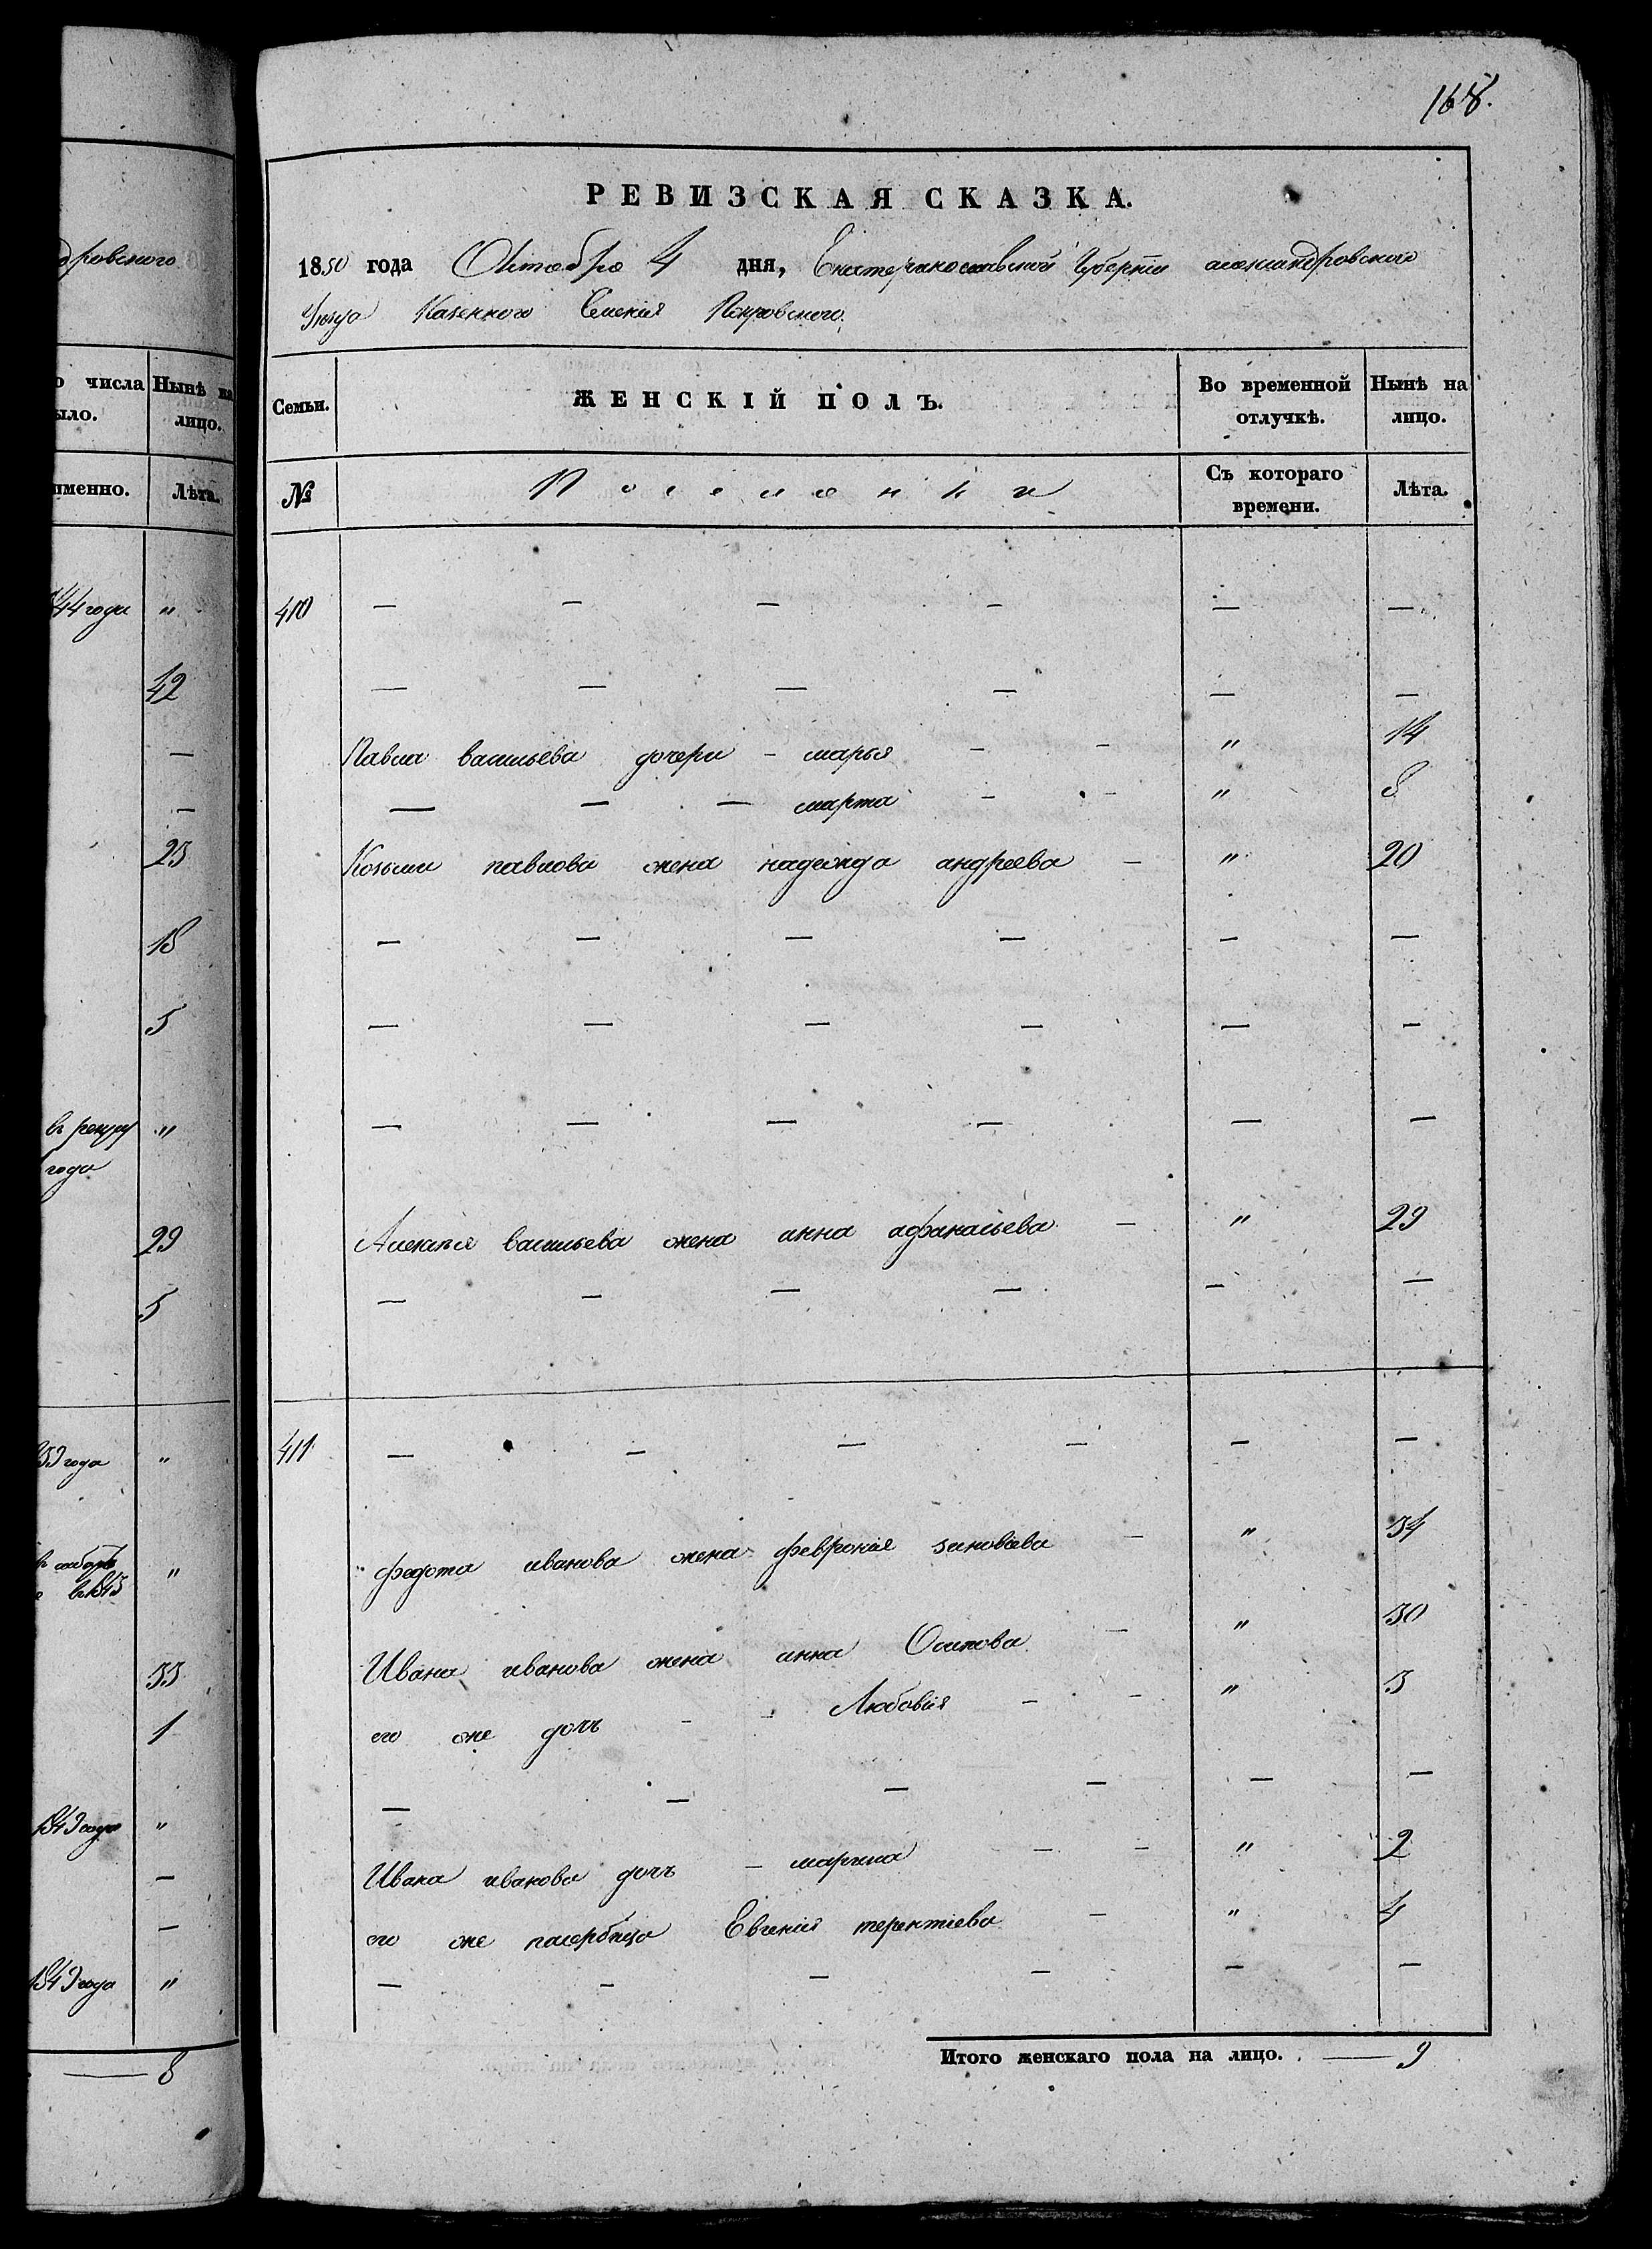 168.
РЕВИЗСКАЯ СКАЗКА.
1850 года Октября 4 дня, Екатеринославской Губернии александровского
Уезда Казенного Селения Покровского.
Семьи. ЖЕНСКІЙ ПОЛЪ. Во временной отлучкѣ. Нынѣ на лицо.
№ Поселянки Съ котораго времени. Лѣта.
410 — — — — — —
— — — — — —
Павла васильева дочери – марья - - " 14
— — — марта - - " 8
Козьмы павлова жена надежда андреева — " 20
— — — — — —
— — — — — —
— — — — — —
васильева жена анна афанасьева — " 29
— — — — — —
411 — — — — — —
федота иванова жена феврония зиновiева — " 34
Ивана иванова жена анна Осипова — " 30
его же дочь - - Любовiя - - " 3
— — — — — —
Ивана иванова дочь – марина - - " 2
его же пасербица Евгения терентiева — " 4
— — — — — —
Итого женскаго пола на лицо. — 9
дровского
о числа Нынѣ на
ыло. лицо.
именно. Лѣта.
44 года "
42
—
—
23
18
5
"
года
29
5
года "
"
33
1
1849 года "
—
—
1849 года "
— 8